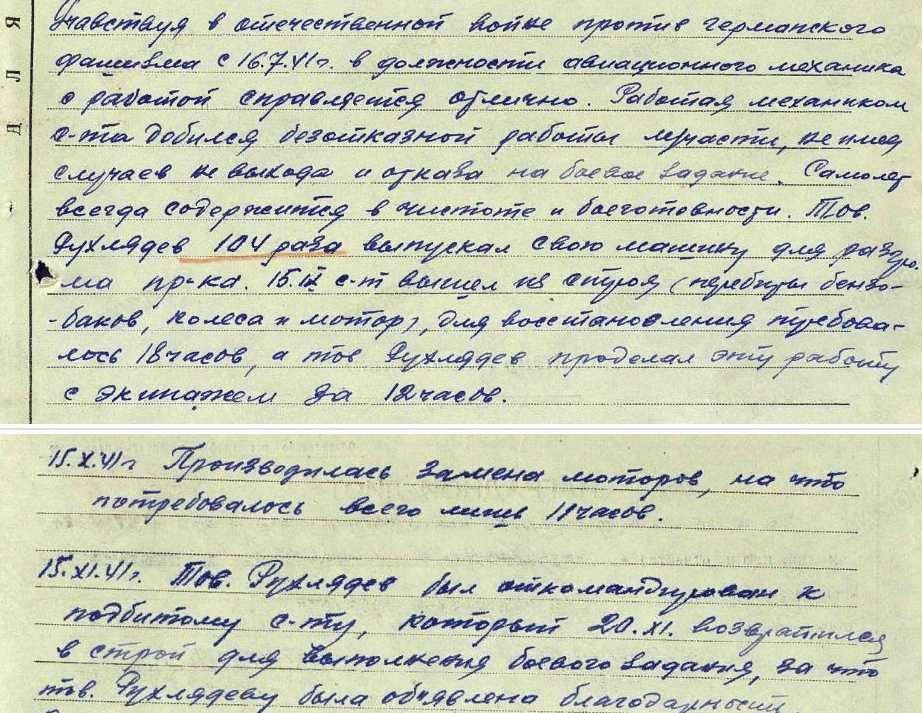 ДЛЯ
Учавствуя в отечественной войне против германского
фашизма с 16.7.41г. в должности авиационного механика
с работой справляется отлично. Работая механиком
с-та добился безотказной работы матчасти, не имея
случаев не выхода и отказа на боевое задание. Самолет
всегда содержится в чистоте и боеготовности. Тов.
Рухлядев 104 раза выпускал свою машину для разгро-
ма пр-ка. 15.IX с-т вышел из строя (перебиты бензо-
-баков, колеса и мотор), для восстановления требова-
лось 18 часов, а тов Рухлядев проделал эту работу
с экипажем за 12 часов.
15.X.41г Производилась замена моторов, на что
потребовалось всего лишь 18 часов.
15.XI.41г. Тов. Рухлядев был откомандирован к
подбитому с-ту, который 20.XI. возвратился
в строй для выполнения боевого задания, за что
тов. Рухлядеву была объявлена благодарность